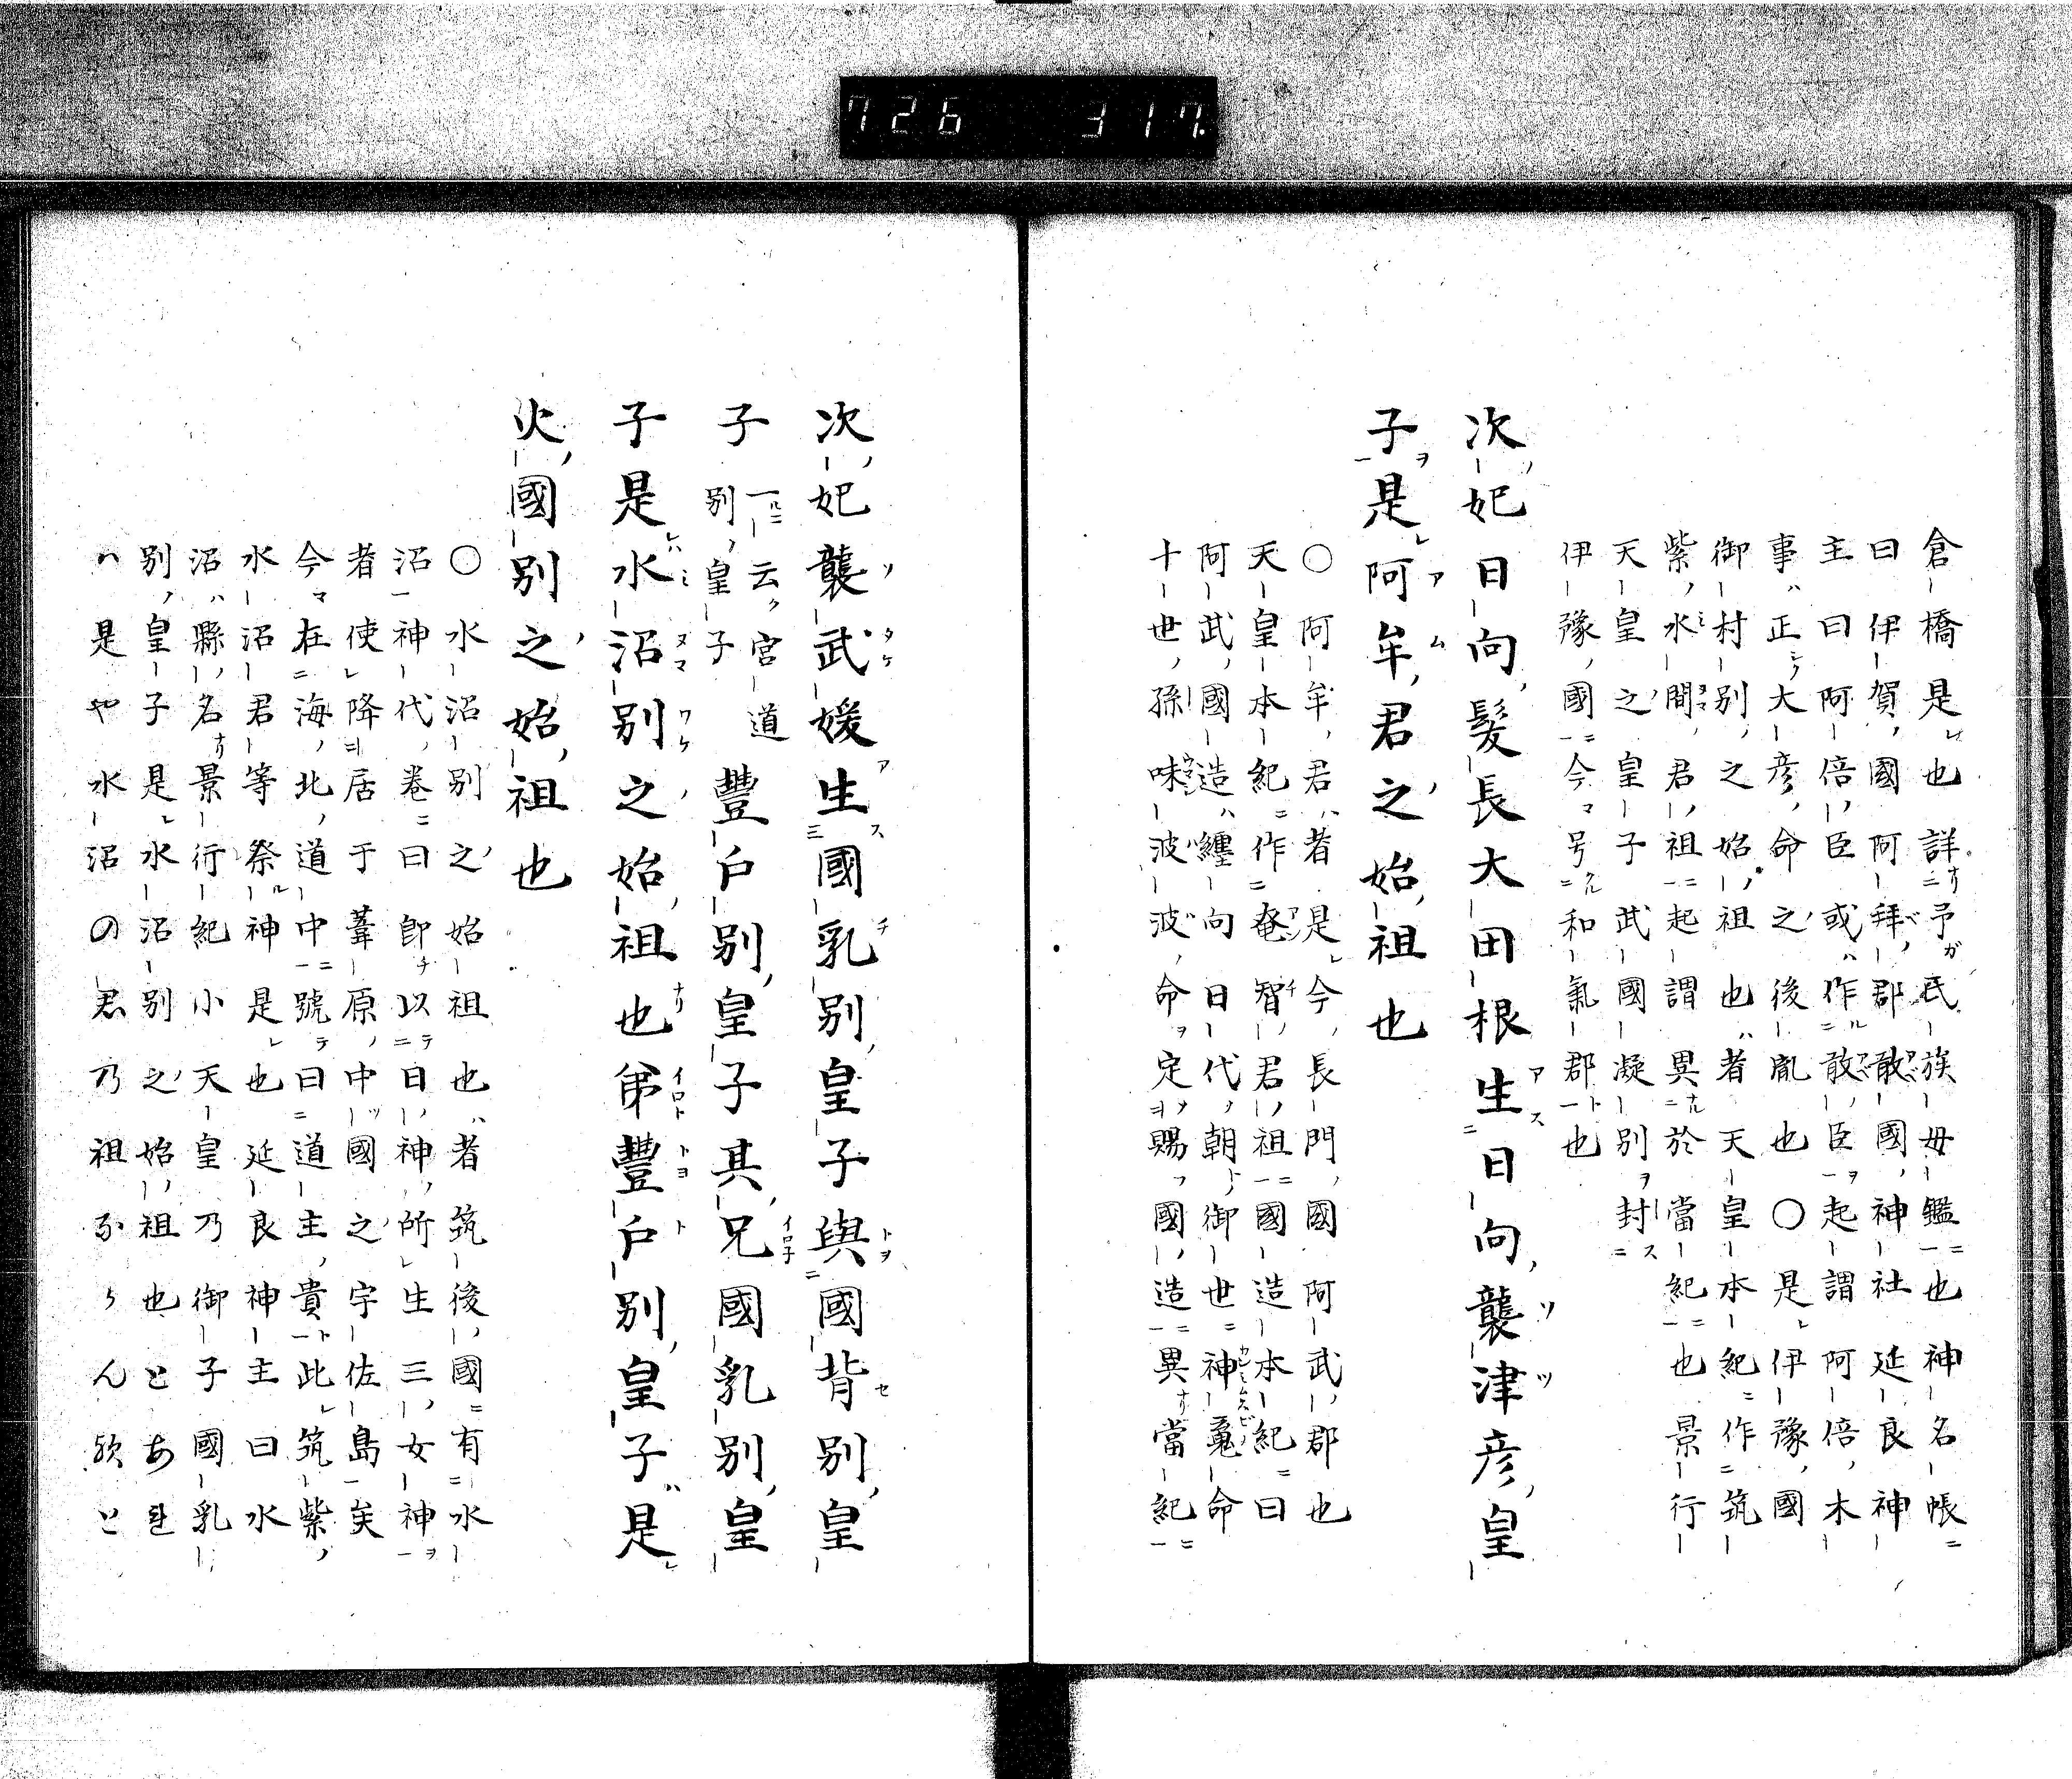 726 317
倉橋是也詳予氏族母鑑也神名帳
曰伊賀國阿拜郡敢國神社延良神
主曰阿倍臣或作敢臣起謂阿倍木
事正大彦命之後胤也〇是伊豫國
御村別之始祖也者天皇本紀作筑
紫水間君祖起謂異於當紀也景行
天皇之皇子武國凝別封
伊豫國今号和氣郡也
次妃日向髪長大田根生日向襲津彦皇
子是阿牟君之始祖也
〇阿牟君者是今長門國阿武郡也
天皇本紀作奄智君祖國造本紀曰
阿武國造纏向日代朝御世神䰠命
十世孫味波波命定賜國造異當紀
次妃襲武媛生國乳別皇子與國背別皇
子一云宮道別皇子豐戸別皇子其兄國乳別皇
子是水沼別之始祖也弟豐戸別皇子是
火國別之始祖也
〇水沼別之始祖也者筑後國有水
沼神代卷曰卽以日神所生三女神
者使降居于葦原中國之宇佐島矣
今在海北道中號曰道主貴此筑紫
水沼君等祭神是也延良神主曰水
沼縣名景行紀小天皇乃御子國乳
別皇子是水沼別之始祖也とあれ
ハ是や水沼の君乃祖ならん歟と